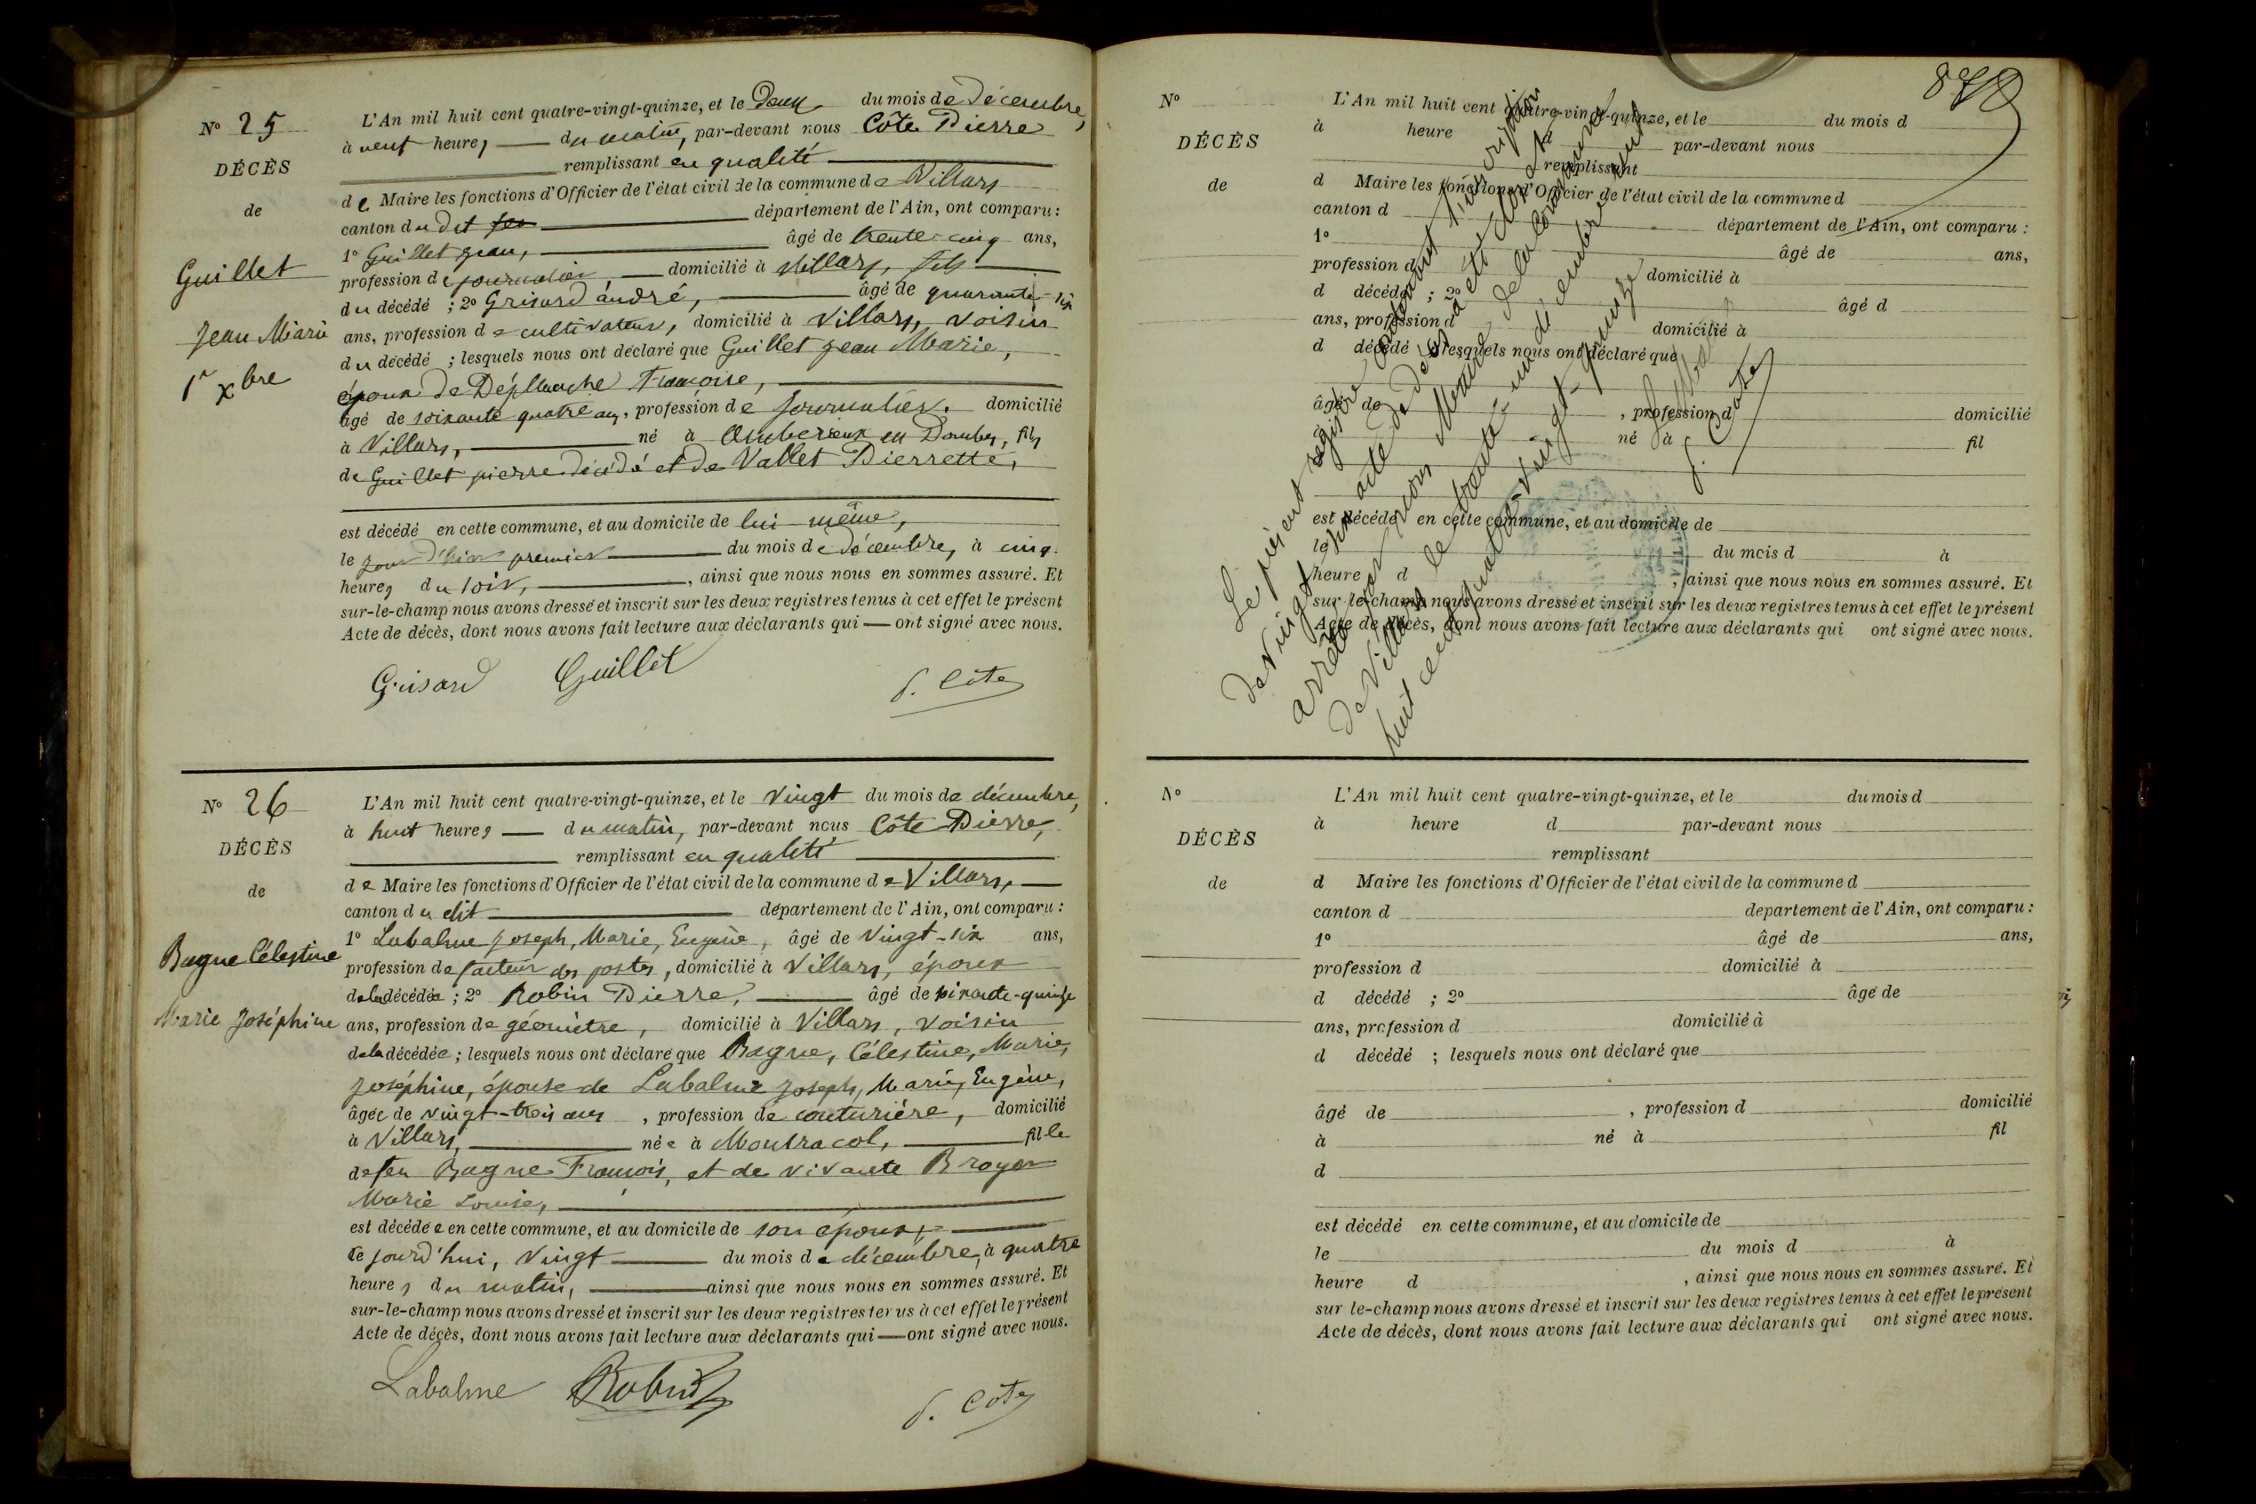 N° 25
DÉCÈS
de
Guillet
Jean Marie
1er Xbre
L'An mil huit cent quatre-vingt-quinze, et le Deux du mois de décembre,
à neuf heures du matin, par-devant nous Côte Pierre
remplissant en qualité
de Maire les fonctions d'Officier de l'état civil de la commune de Villars
canton du dit département de l'Ain, ont comparu :
1° Guillet Jean, âgé de trente-cinq ans,
profession de journalier, domicilié à Villars, fils
du décédé ; 2° Grisard André, âgé de quarante-six
ans, profession de cultivateur, domicilié à Villars, voisin
du décédé ; lesquels nous ont déclaré que Guillet Jean Marie,
époux de Déplanche Françoise,
âgé de soixante quatre ans, profession de journalier, domicilié
à Villars, né à Amberieux en Dombes, fils
de Guillet pierre décédé et de Vallet Pierrette,
est décédé en cette commune, et au domicile de lui-même,
le jour d'hier premier du mois de décembre, à cinq
heures du soir, ainsi que nous nous en sommes assuré. Et
sur-le-champ nous avons dressé et inscrit sur les deux registres tenus à cet effet le présent
Acte de décès, dont nous avons fait lecture aux déclarants qui ont signé avec nous.
Grisard Guillet P. Côte
N° 26
DÉCÈS
de
Bagne Célestine
Marie Joséphine
L'An mil huit cent quatre-vingt-quinze, et le vingt du mois de décembre,
à huit heures du matin, par-devant nous Côte Pierre,
remplissant en qualité
de Maire les fonctions d'Officier de l'état civil de la commune de Villars,
canton du dit département de l'Ain, ont comparu :
1° Labalme Joseph, Marie, Eugène, âgé de vingt-six ans,
profession de facteur des postes, domicilié à Villars, époux
de la décédée ; 2° Robin Pierre, âgé de soixante-quinze
ans, profession de géomètre, domicilié à Villars, voisin
de la décédée ; lesquels nous ont déclaré que Bagne, Célestine, Marie,
Joséphine, épouse de Labalme Joseph, Marie, Eugène,
âgée de vingt-trois ans, profession de couturière, domicilié
à Villars, née à Montracol, fille
de feu Bagne François, et de vivante Broyer
Marie Louise,
est décédée en cette commune, et au domicile de son époux,
ce jourd'hui, vingt du mois de décembre, à quatre
heures du matin, ainsi que nous nous en sommes assuré. Et
sur-le-champ nous avons dressé et inscrit sur les deux registres tenus à cet effet le présent
Acte de décès, dont nous avons fait lecture aux déclarants qui ont signé avec nous.
Labalme Robin P. Côte
N°
DÉCÈS
de
L'An mil huit cent quatre-vingt-quinze, et le du mois d
à heure d par-devant nous
remplissant
d Maire les fonctions d'Officier de l'état civil de la commune d
canton d département de l'Ain, ont comparu :
1° âgé de ans,
profession d domicilié à
d décédé ; 2° âgé d
ans, profession d domicilié à
d décédé ; lesquels nous ont déclaré que
âgé de , profession d domicilié
à né à fil
est décédé en cette commune, et au domicile de
le du mois d à
heure d , ainsi que nous nous en sommes assuré. Et
sur le-champ nous avons dressé et inscrit sur les deux registres tenus à cet effet le présent
Acte de décès, dont nous avons fait lecture aux déclarants qui ont signé avec nous.
Le présent registre contenant l'inscription
de vingt six acte de décès a été clos et
arrêté par nous Maire de la commune
de Villars le trente-un décembre mil
huit cent quatre-vingt-quinze
P. Côte
N°
DÉCÈS
de
L'An mil huit cent quatre-vingt-quinze, et le du mois d
à heure d par-devant nous
remplissant
d Maire les fonctions d'Officier de l'état civil de la commune d
canton d departement de l'Ain, ont comparu :
1° âgé de ans,
profession d domicilié à
d décédé ; 2° âgé de
ans, profession d domicilié à
d décédé ; lesquels nous ont déclaré que
âgé de , profession d domicilié
à né à fil
d
est décédé en cette commune, et au domicile de
le du mois d à
heure d , ainsi que nous nous en sommes assuré. Et
sur le-champ nous avons dressé et inscrit sur les deux registres tenus à cet effet le présent
Acte de décès, dont nous avons fait lecture aux déclarants qui ont signé avec nous.